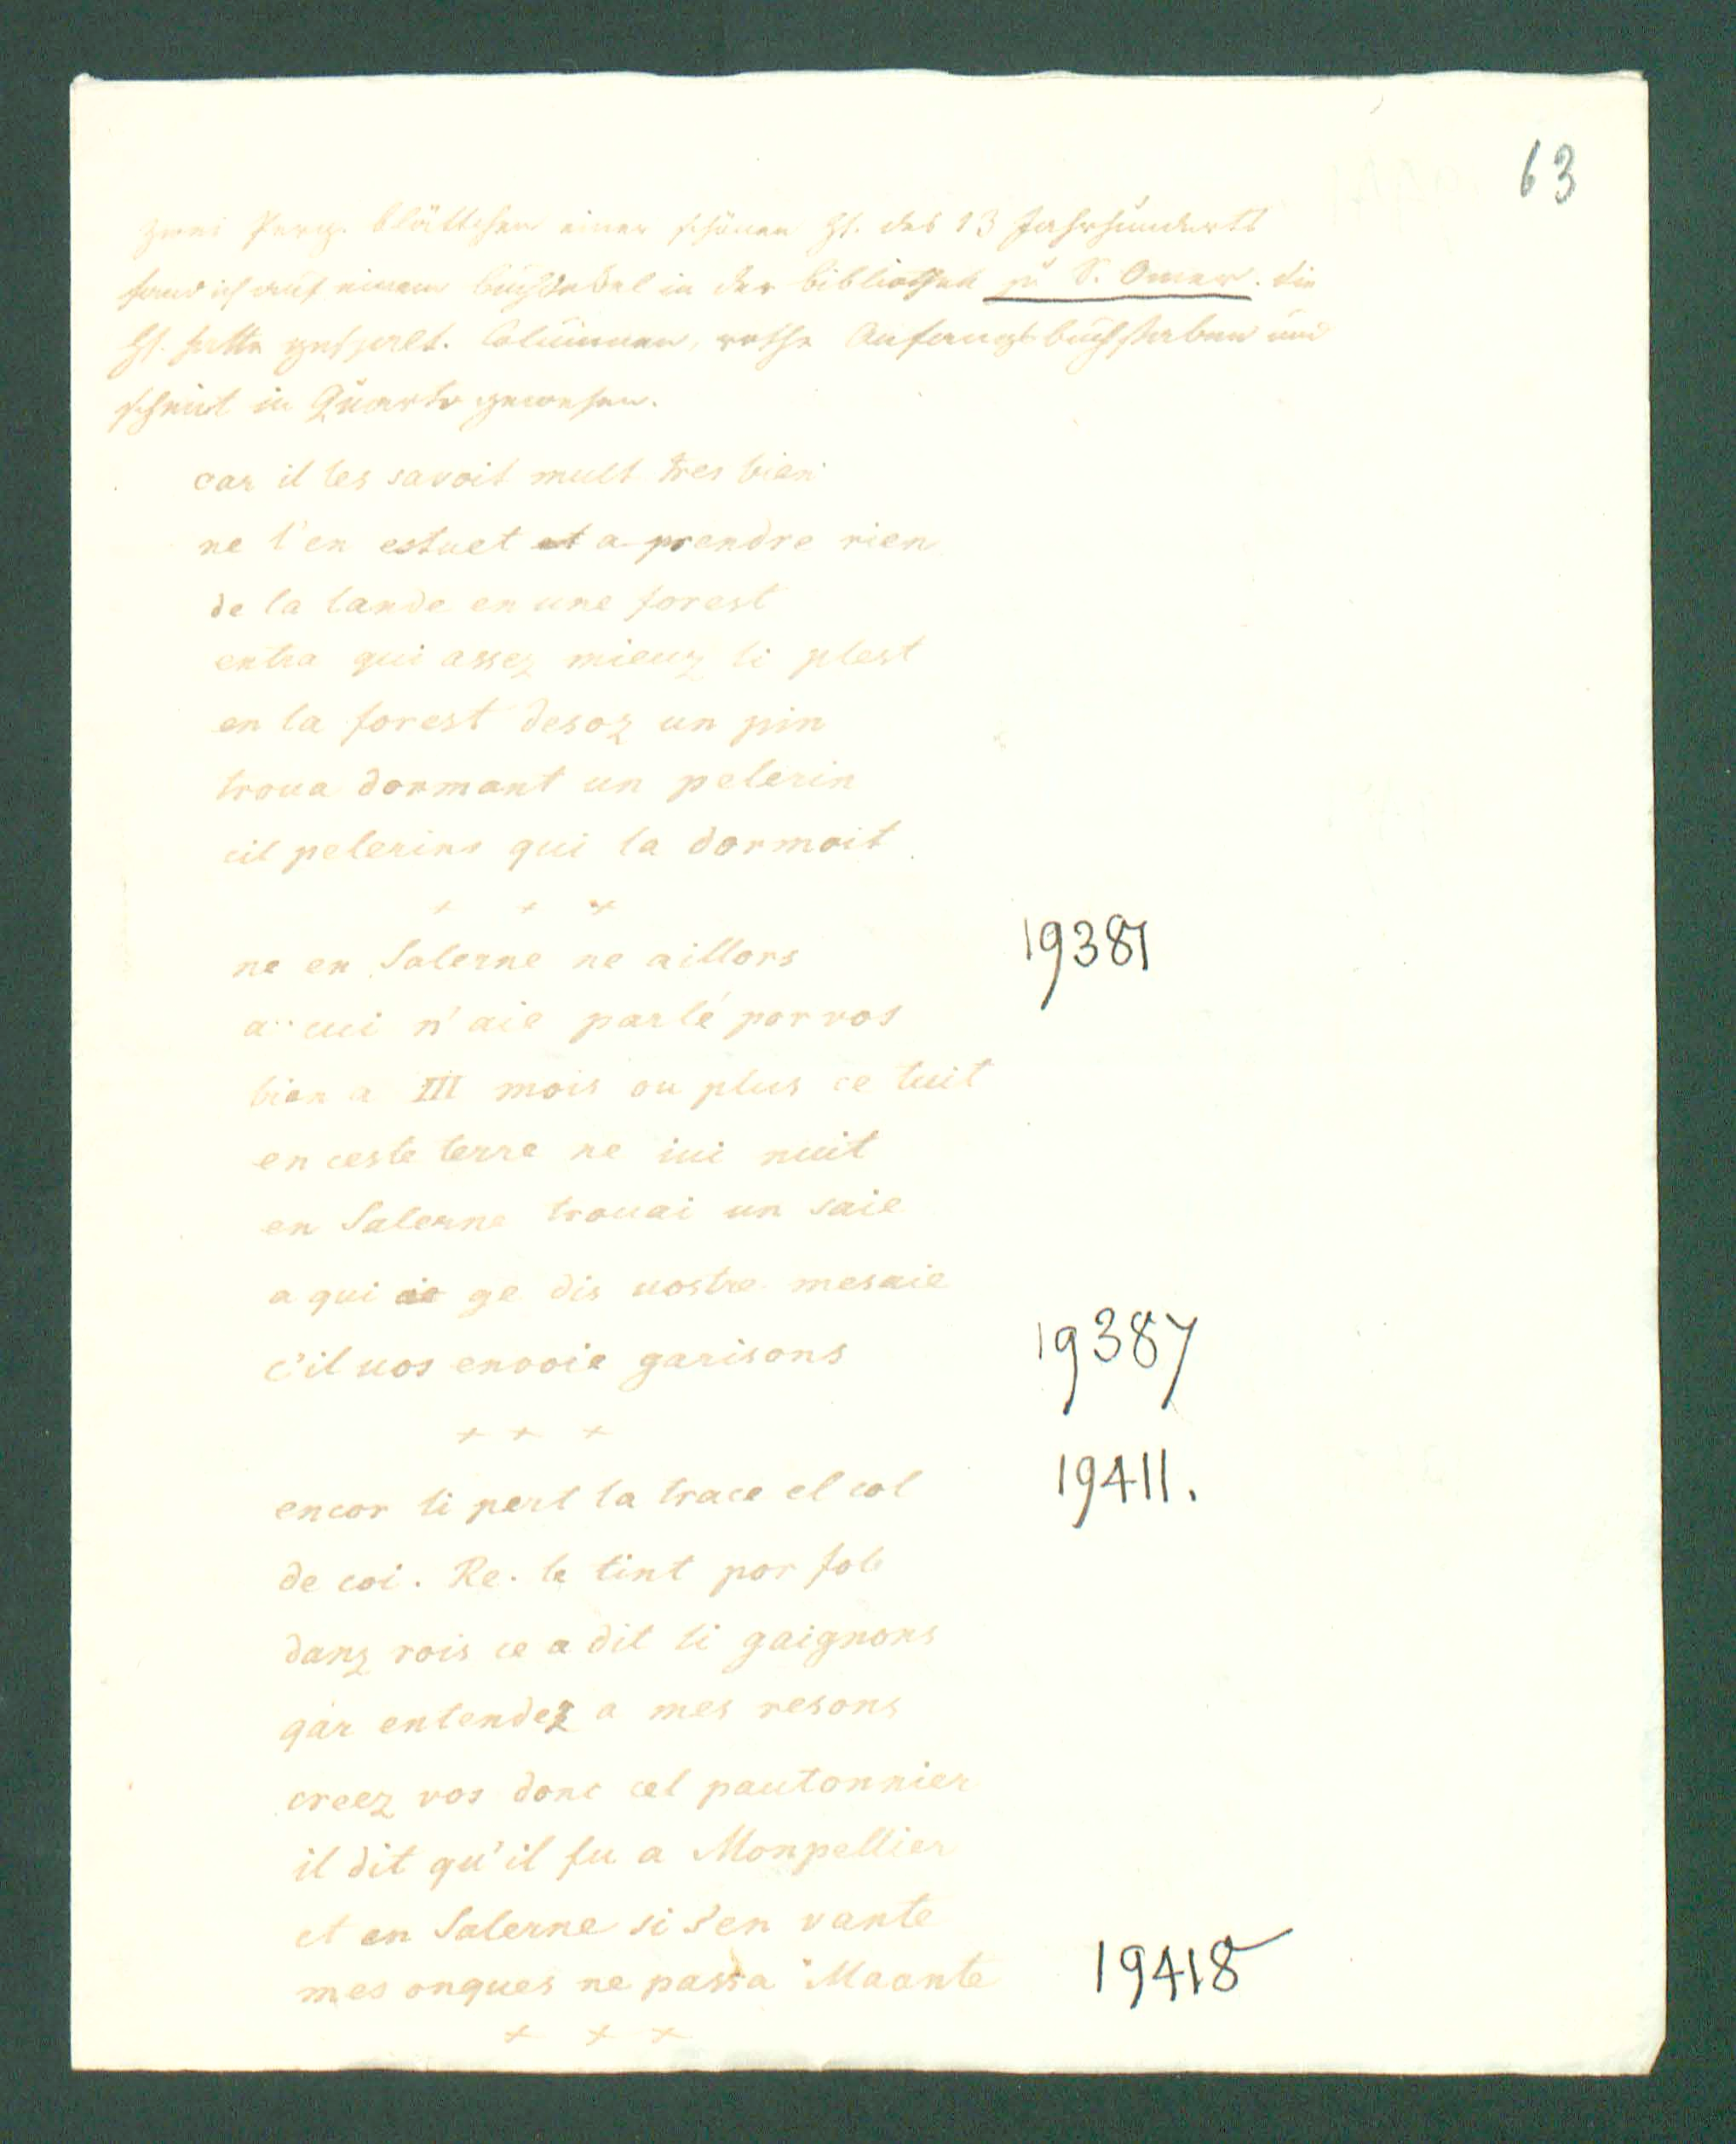 63
zwei Perg. blättchen einer schönen Hs. des 13 Jahrhunderts
fand ich auf einem buchdeckel in der bibliothek zu S. Omer. die
Hs. hatte gespalt. Columnen, rothe Anfangsbuchstaben und
scheint in Quarto gewesen.
car il les savoit mult tres bien
ne l'en estuet a prendre rien
de la lande en une forest
entra qui assez mieuz li plest
en la forest desoz un pin
troua dormant un pelerin
cil pelerins qui la dormoit
+ + +
ne en Salerne ne aillors 19381
a cui n'aie parlé por vos
bien a III mois ou plus ce cuit
en ceste terre ne iui nuit
en Salerne trouai un saie
a qui ge dis uostre mesaie
c'il uos enuoie garisons 19387
+ + +
encor li pert la trace el col 19411.
de coi. Re. le tint por fol
danz rois ce a dit li gaignons
qar entendez a mes resons
creez vos donc cel pautonnier
il dit qu'il fu a Monpellier
et en Salerne si s'en vante
mes onques ne passa Maante 19418
+ + +